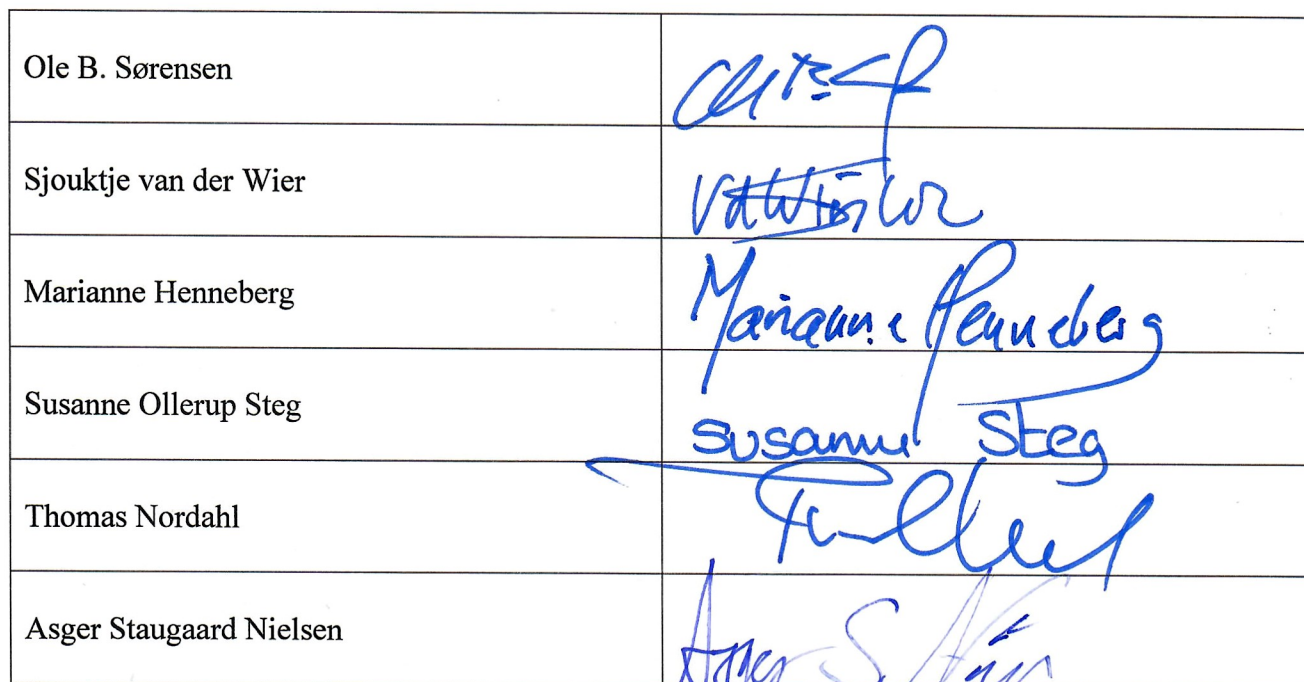 Ole B. Sørensen
Sjouktje van der Wier
Marianne Henneberg Marianne Henneberg
Susanne Ollerup Steg Susanne Steg
Thomas Nordahl
Asger Staugaard Nielsen Asger S.